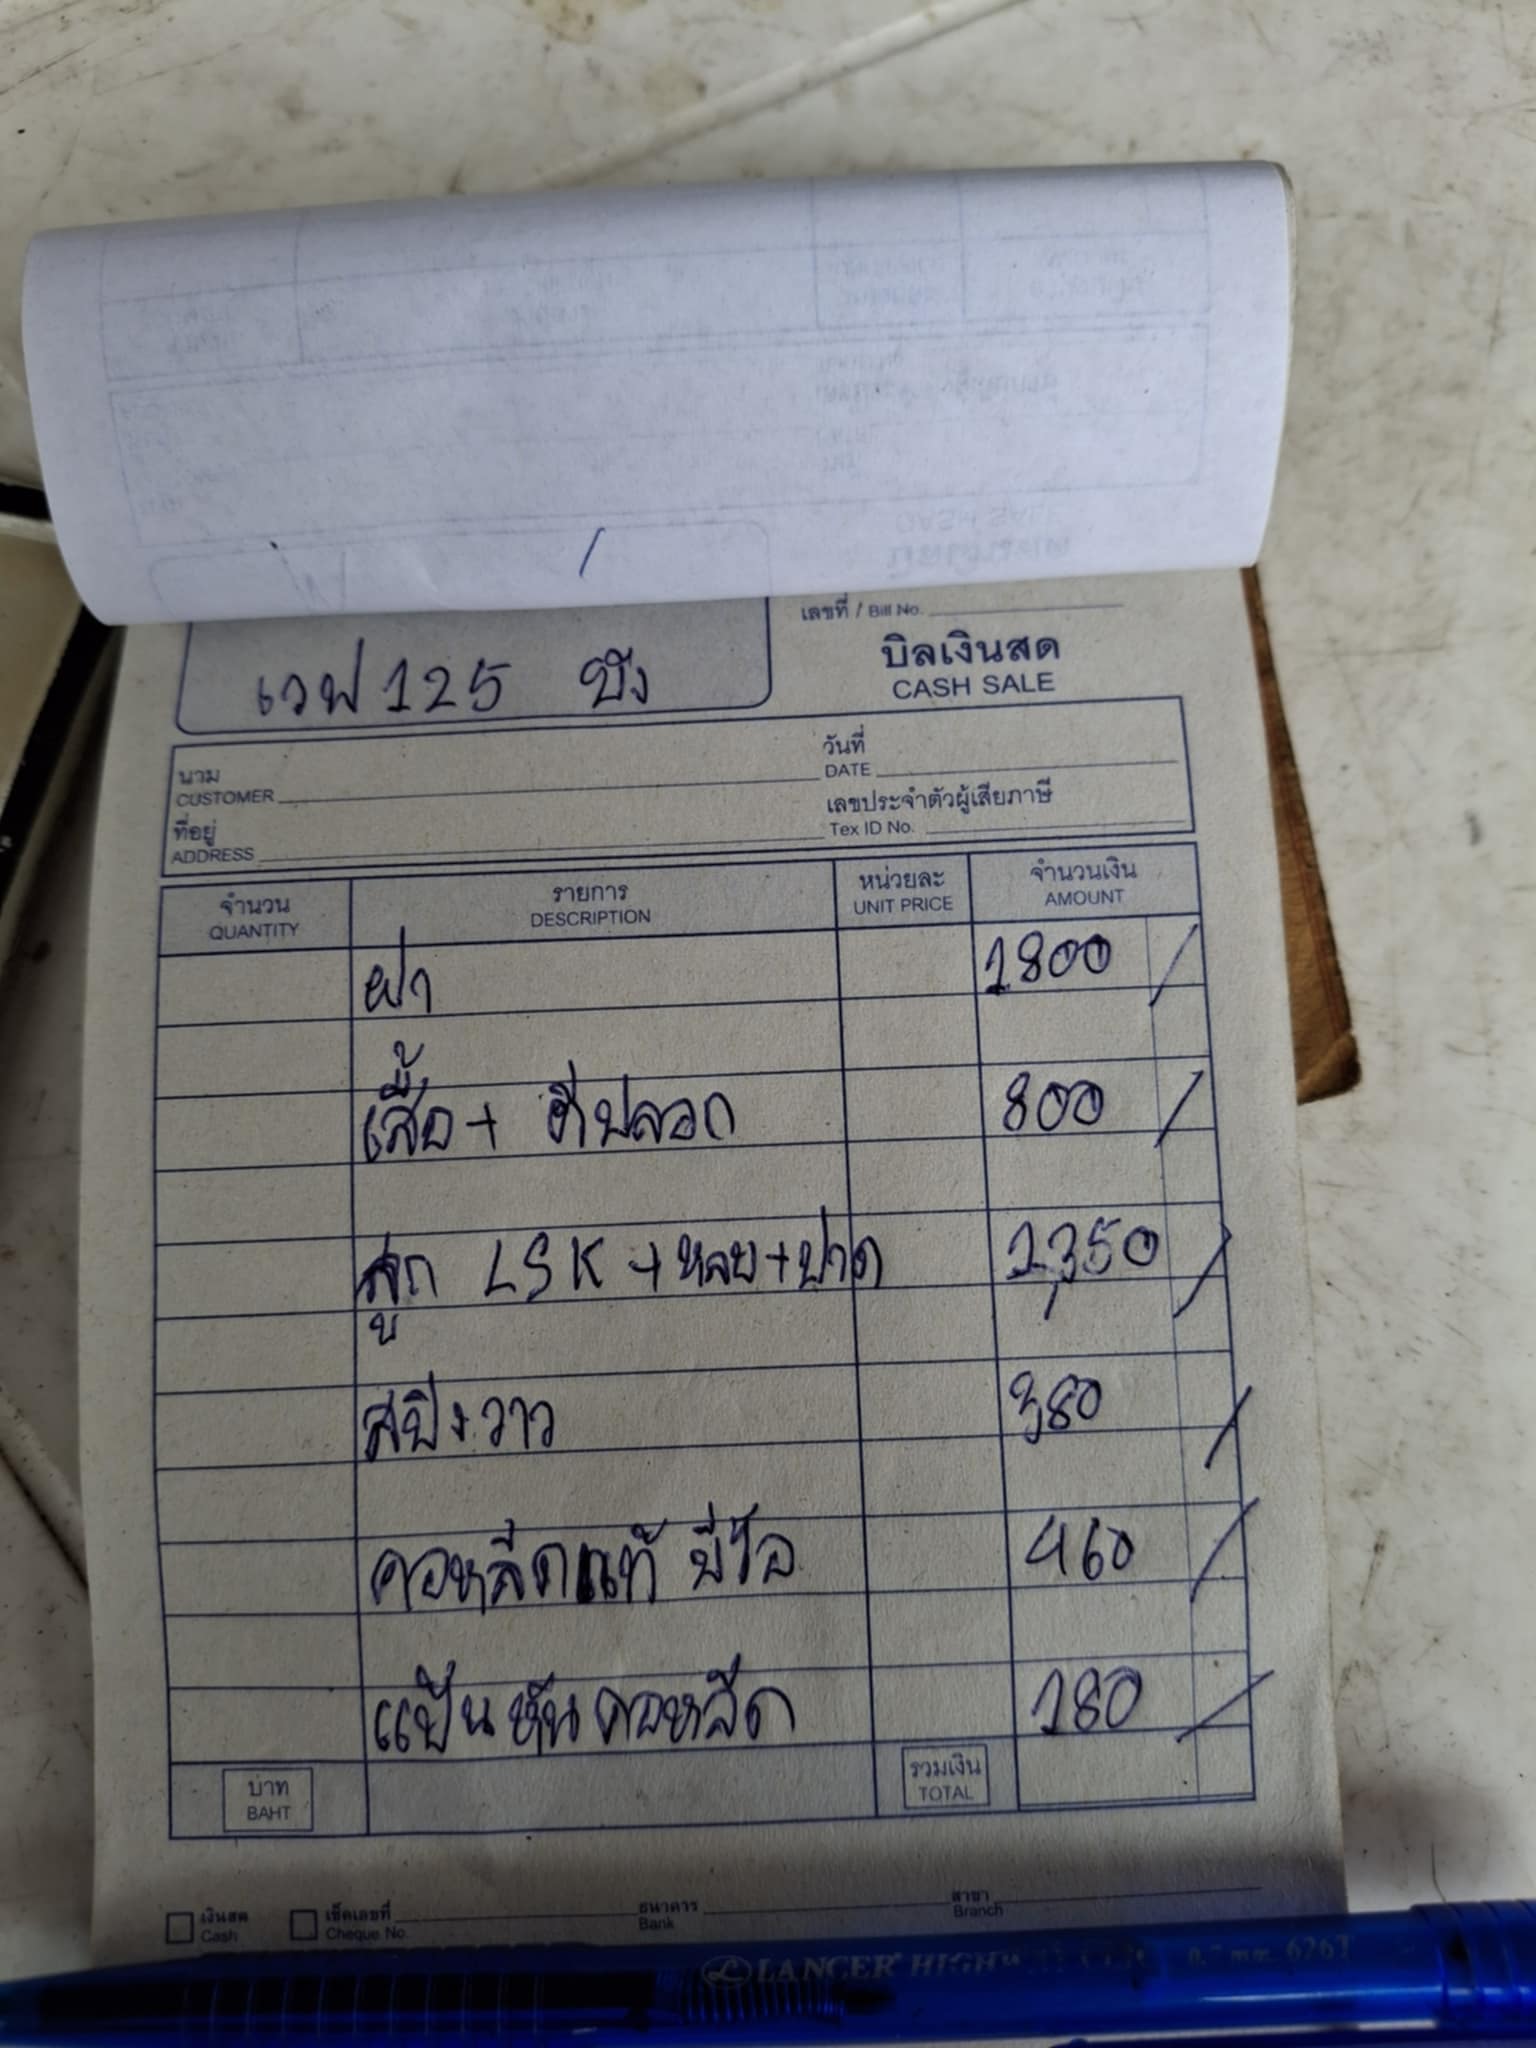 เลขที่ / Bill No.
บิลเงินสด
CASH SALE
เวฟ 125 บัง
นาม
CUSTOMER
วันที่
DATE
ที่อยู่
ADDRESS
เลขประจำตัวผู้เสียภาษี
Tex ID No.
จำนวน รายการ หน่วยละ จำนวนเงิน
QUANTITY DESCRIPTION UNIT PRICE AMOUNT
ฝา 1800 /
เสื้อ + ตีปลอก 800 /
ลูก LSK + หลบ + ปาด 1,350 /
สปิงวาว 380 /
คอหลีดแท้ บีโอ 460 /
แป้นหันคอหลีด 180 /
บาท
BAHT
รวมเงิน
TOTAL
เงินสด เช็คเลขที่ ธนาคาร สาขา
Cash Cheque No. Bank Branch
LANCER